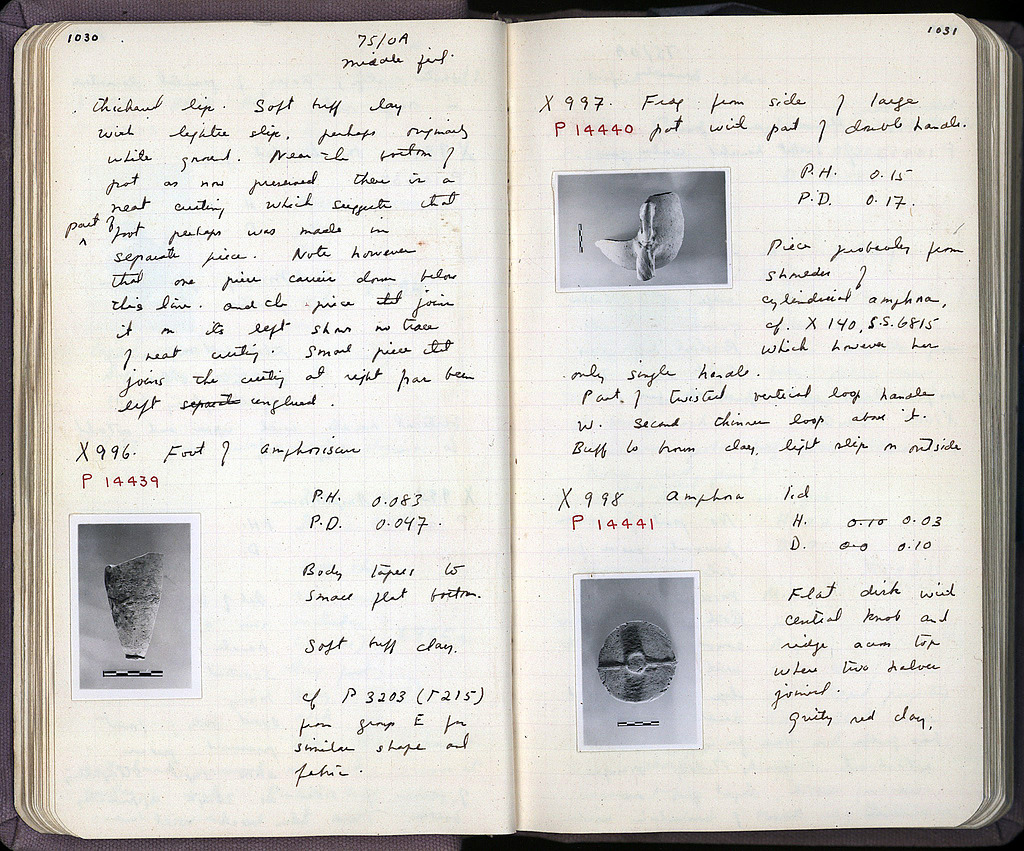 1030
75/OA
middle fill.
thickened lip. Soft buff clay
with lighter slip, perhaps originally
white ground. Near the bottom of
pot as now preserved there is a
neat cutting which suggests that
part of
foot perhaps was made in
separate piece. Note however
that one piece carries down below
this line. and the piece that joins
it on its left shows no trace
of neat cutting. Small piece that
joins the cutting at right has been
left separate unglued.
X 996. Foot of amphoriscus
P 14439
P.H. 0.083
P.D. 0.047.
Body tapers to
small flat bottom.
Soft buff clay.
cf P 3203 (Γ 215)
from group E for
similar shape and
fabric.
1031
X 997. Frag from side of large
P 14440 pot with part of double handle.
P.H. 0.15
P.D. 0.17.
Piece probably from
shoulder of
cylindrical amphora,
cf. X 140, S.S. 6815
which however has
only single handle.
Part of twisted vertical loop handle
w. second thinner loop above it.
Buff to brown clay, light slip on outside
X 998 Amphora lid
P 14441
H. 0.10 0.03
D. 0.0 0.10
Flat disk with
central knob and
ridge across top
where two halves
joined.
Gritty red clay.